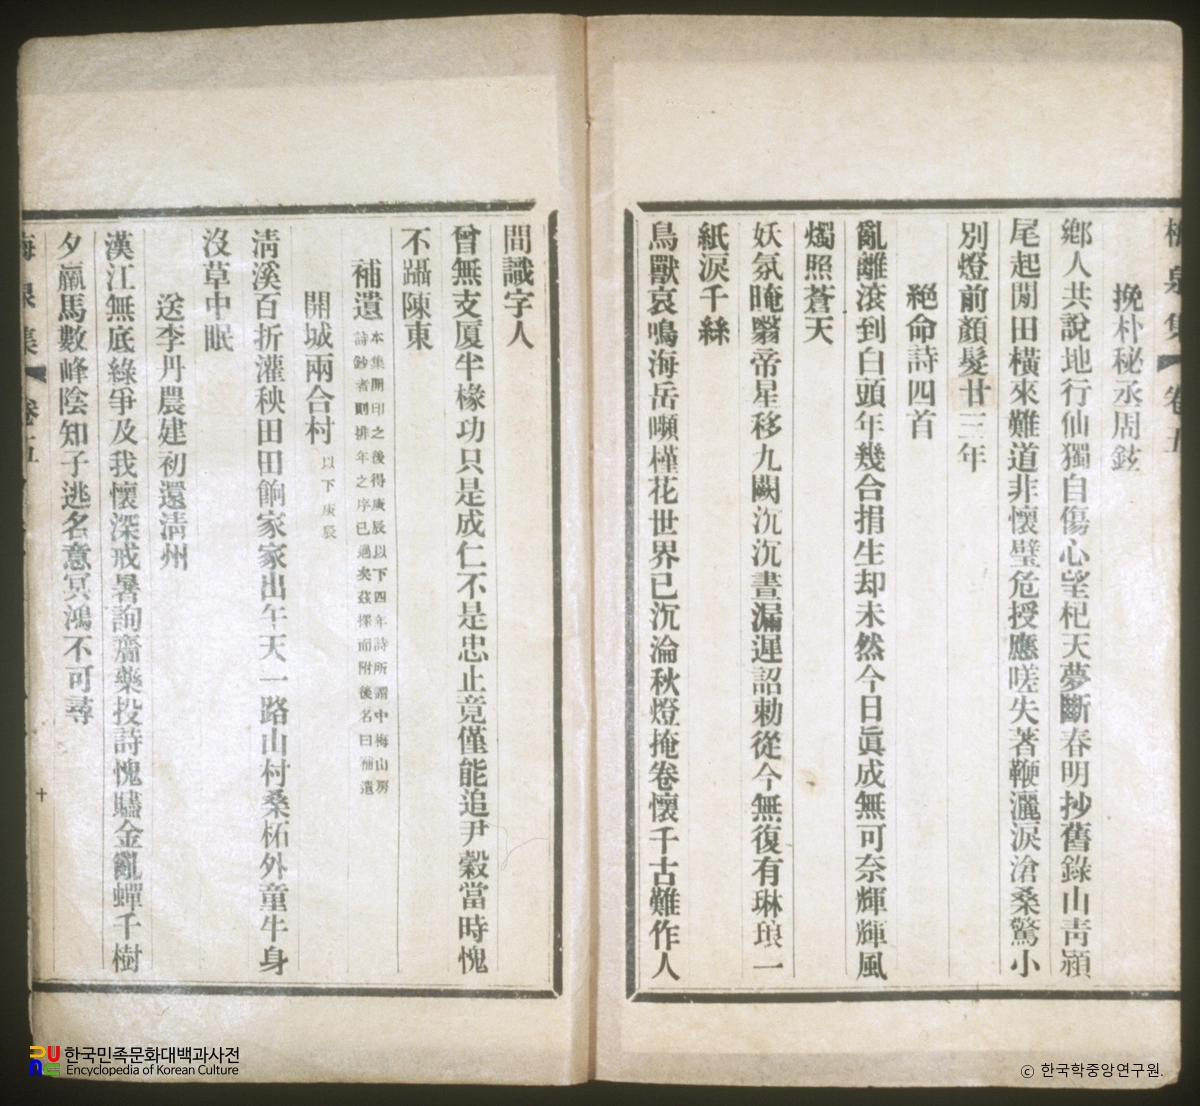 梅泉集 卷五
挽朴秘丞周鉉
鄕人共說地行仙獨自傷心望杞天夢斷春明抄舊錄山靑潁
尾起閒田橫來難道非懷璧危授應嗟失著鞭灑淚滄桑驚小
別燈前顏髮廿三年
絕命詩四首
亂離滾到白頭年幾合捐生却未然今日眞成無可奈輝輝風
燭照蒼天
妖氛晻翳帝星移九闕沉沉晝漏遲詔勅從今無復有琳琅一
紙淚千絲
鳥獸哀鳴海岳嚬槿花世界已沉淪秋燈掩卷懷千古難作人
間識字人
曾無支厦半椽功只是成仁不是忠止竟僅能追尹穀當時愧
不躡陳東
補遺 本集開印之後得庚辰以下四年詩所謂中梅山房
詩鈔者則排年之序已過矣茲擇而附後名曰補遺
開城兩合村 以下庚辰
淸溪百折灌秧田田餉家家出午天一路山村桑柘外童牛身
沒草中眠
送李丹農建初還淸州
漢江無底綠爭及我懷深戒暑詢齋藥投詩愧贐金亂蟬千樹
夕羸馬數峰陰知子逃名意冥鴻不可尋
梅泉集 卷五
十
한국민족문화대백과사전
Encyclopedia of Korean Culture
ⓒ 한국학중앙연구원.